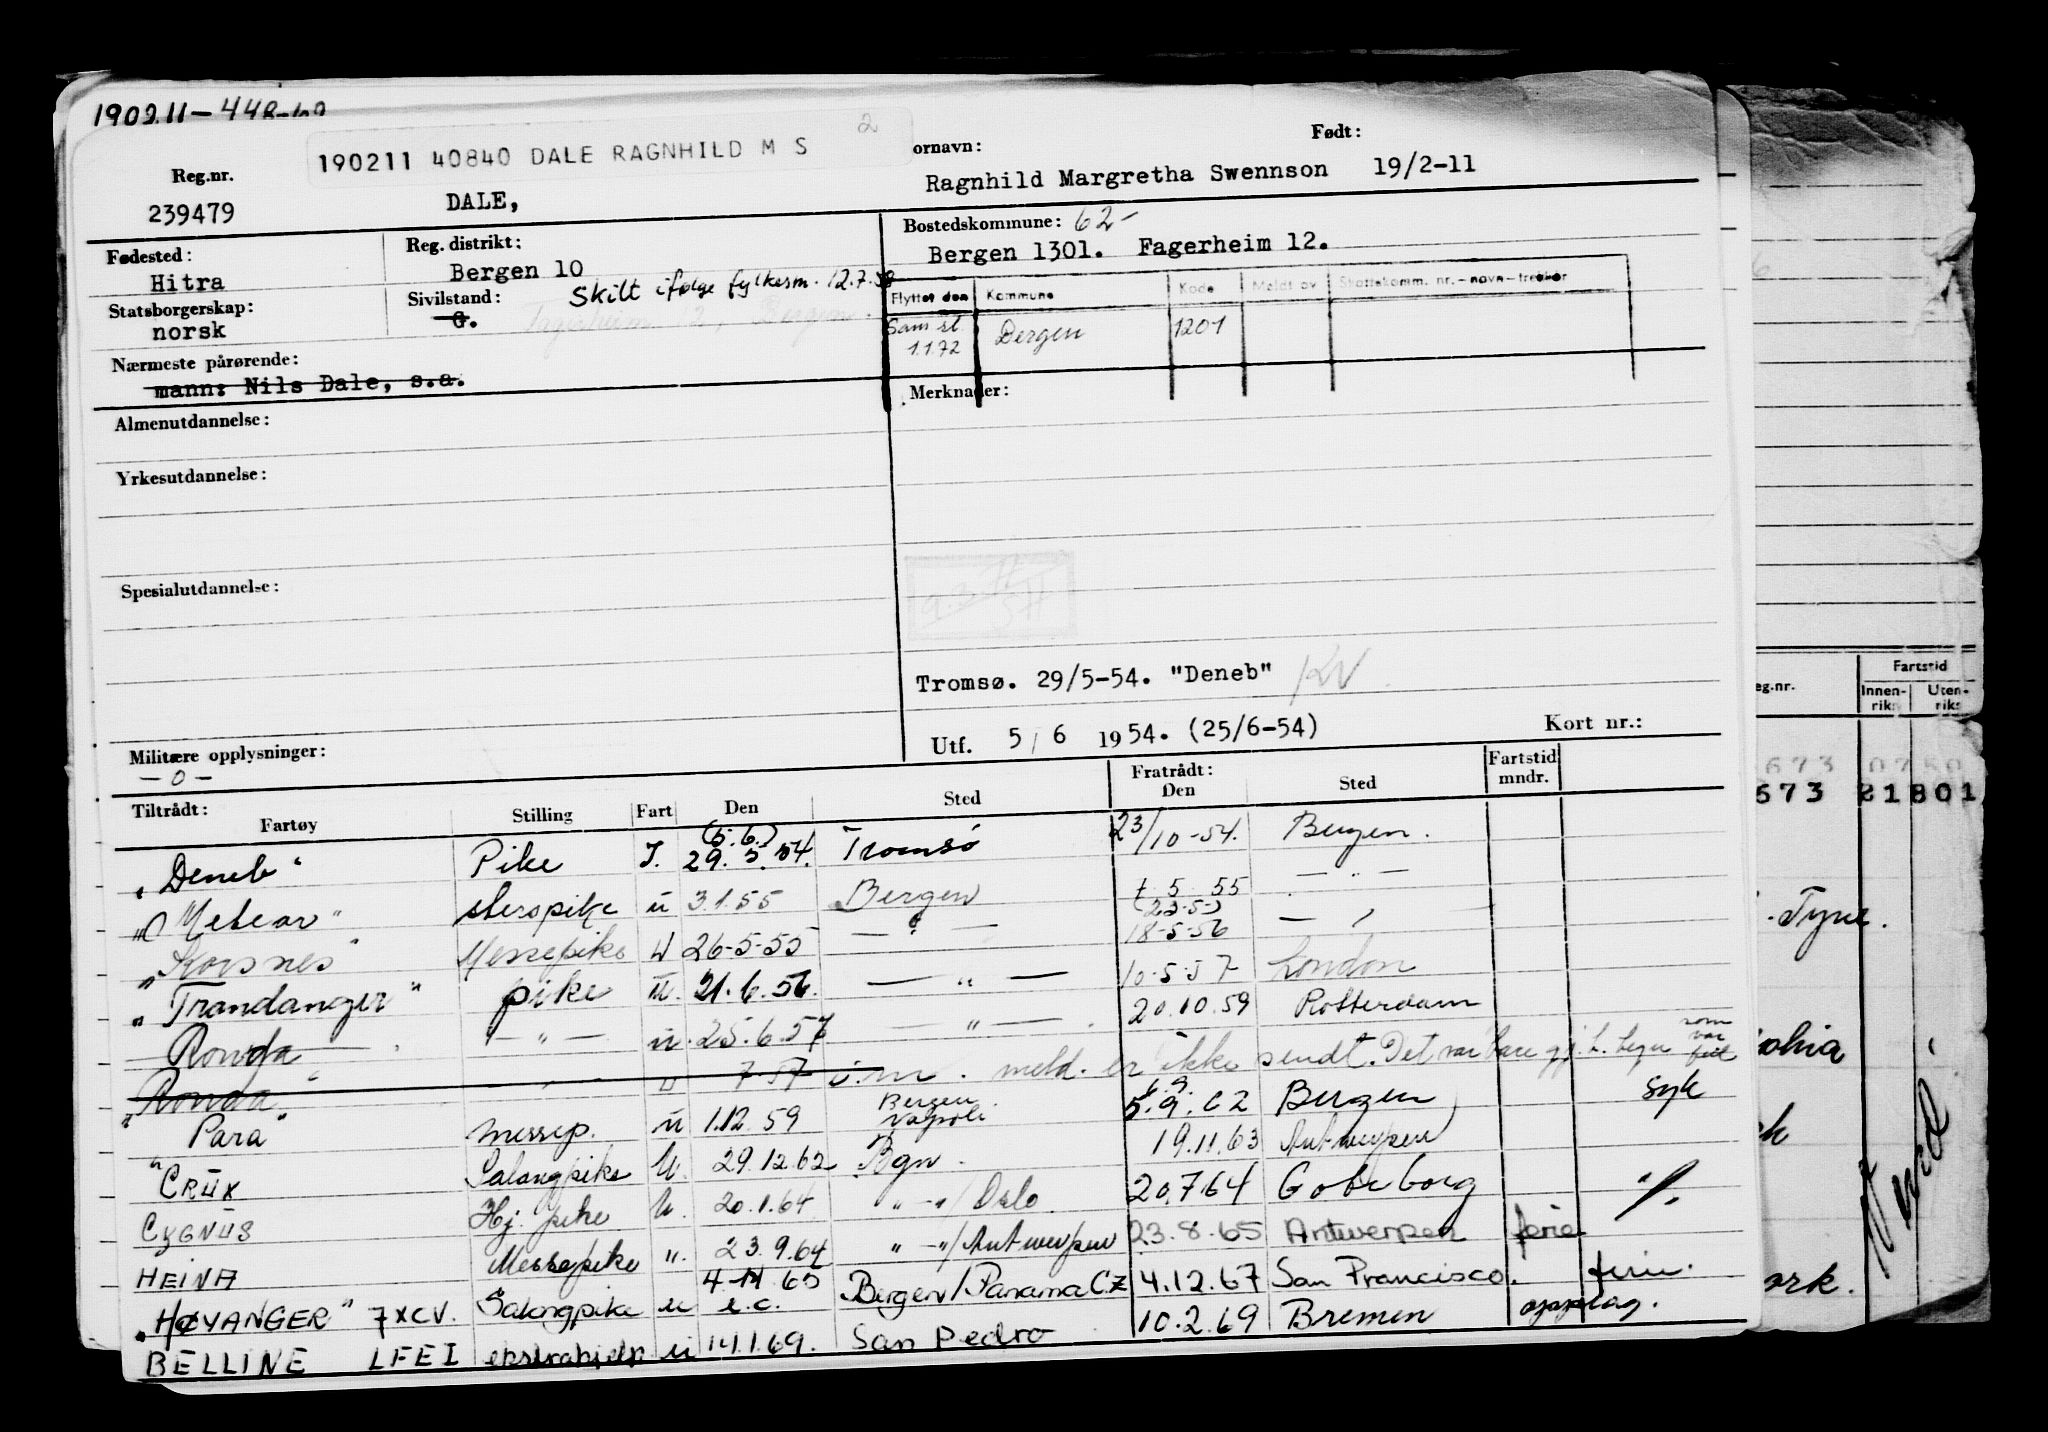 190211-448-62
190211 40840 DALE RAGNHILD M S 2
Reg.nr. 239479
DALE,
ornavn: Ragnhild Margretha Swennson
Født: 19/2-11
Fødested: Hitra
Reg. distrikt: Bergen 10
Bostedskommune: 62-
Bergen 1301. Fagerheim 12.
Statsborgerskap: norsk
Sivilstand: G. Skilt ifølge fylkesm. 12.7.58
Fagerheim 12, Bergen.
Flyttet den Kommune Kode Meldt av Skattekomm. nr.-navn-trekker
Sam st. 1.1.72 Bergen 1201
Nærmeste pårørende:
mann: Nils Dale, s.a.
Merknader:
Almenutdannelse:
Yrkesutdannelse:
Spesialutdannelse:
Tromsø. 29/5-54. "Deneb" KV
Utf. 5/6 1954. (25/6-54) Kort nr.:
Militære opplysninger:
-0-
Tiltrådt: Fartøy Stilling Fart Den Sted Fratrådt: Den Sted Fartstid mndr.
"Deneb" Pike I. (5.6.) 29.5.54. Tromsø 23/10-54. Bergen.
"Meteor" u 3.1.55 Bergen 5 55 (23.5.) — " —
"Korsnes" Messepike u 26-5-55 — " — 18-5-56 — " —
"Trandanger" pike u. 21.6.56. — " — 10-5-57 London
Ronda — " — u. 25.6.57 — " — . 20.10.59 Rotterdam
"Ronda" " u 7-57 meld. er ikke sendt. Det var bare som var feil
"Para" messep. u 1.12.59 Bergen Napoli 6.9. 5.9.62 Bergen syk
"CRUX Salongpike U. 29.12.62 Bgn. 19.11.63 Antwerpen
CYGNUS Hj. pike U. 20.1.64 " -"/ Oslo 20.7.64 Goteborg
HEINA Messepike ". 23.9.64 " -"/ Antwerpen 23.8.65 Antwerpen ferie
"HØYANGER" 7XCV. Salongpike u 65 Bergen/Panama CZ 4.12.67 San Francisco. ferie.
BELLINE LFEI ekstrahjelp u 14.1.69. San Pedro 10.2.69 Bremen opplag.
eg.nr. Fartstid
Innen-riks Uten-riks
673 0780
673 21801
Tyne.
ork.